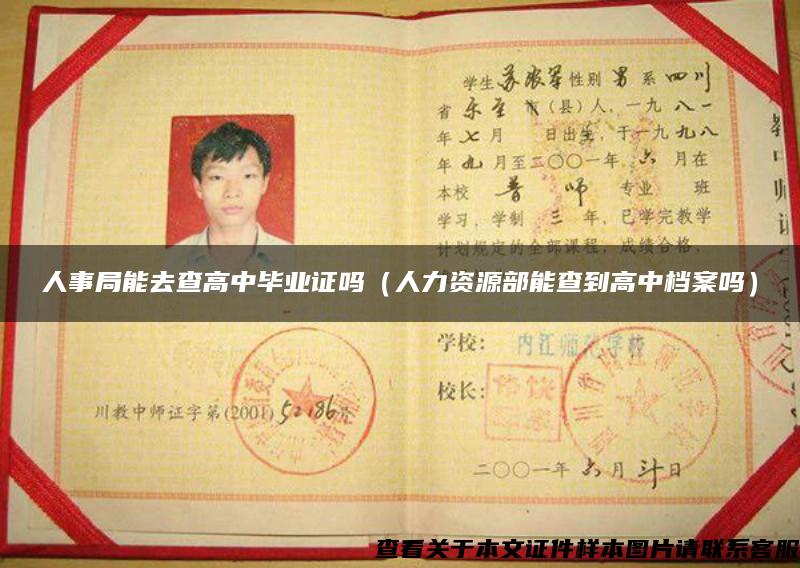 学生 苏 性别 男 系 四川
省 乐至 市(县)人,一九 八一
年 七 月 日出生,于一九 九八
年 九 月至二〇〇一年 六 月在
本校 普师 专业 班
学习,学制 三 年,已学完教学
计划规定的全部课程,成绩合格,
人事局能去查高中毕业证吗(人力资源部能查到高中档案吗)
学校: 内江师范学校
校长:
川教中师证字第(2001)52186号
二〇〇一年 六 月 廿 日
查看关于本文证件样本图片请联系客服